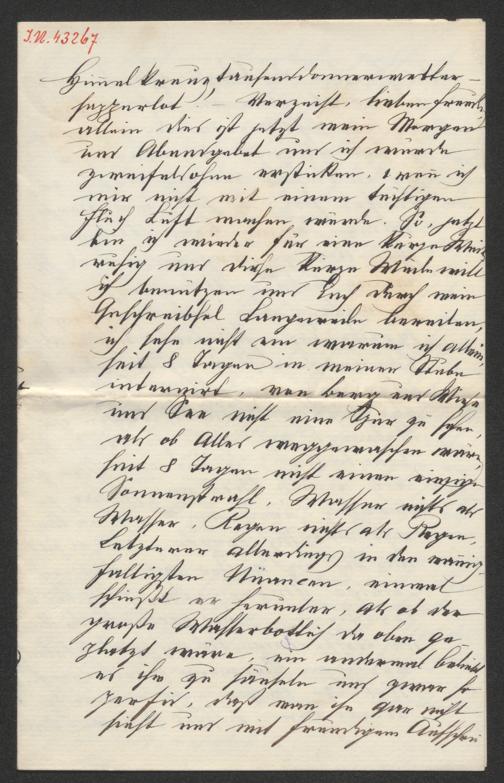 I.N. 43267
Himmelkreuztausenddonnerwetter-
sapperlot! – Verzeiht, lieben Freunde,
allein dies ist jetzt mein Morgen
und Abendgebet und ich würde
zweifelsohne ersticken, wenn ich
mir nicht mit einem tüchtigen
Fluch Luft machen würde. So, jetzt
bin ich wieder für eine kurze Weile
ruhig und diese kurze Weile will
ich benützen um Euch durch mein
Geschreibsel Langeweile bereiten,
ich sehe nicht ein warum ich allein,
seit 8 Tagen in meiner Stube
internirt, von Berg und Wiese
und See nicht eine Spur zu sehen,
als ob Alles weggewaschen wäre,
seit 8 Tagen nicht einen einzigen
Sonnenstrahl, Wasser nichts als
Wasser, Regen nichts als Regen,
Letzterer allerdings in den mannig-
faltigsten Nüancen, einmal
schießt er herunter, als ob der
große Wasserbottich da oben ge
platzt wäre, ein andermal beliebt
es ihm zu säuseln und zwar so
perfid, daß man ihn gar nicht
sieht und mit freudigem Aufschrei